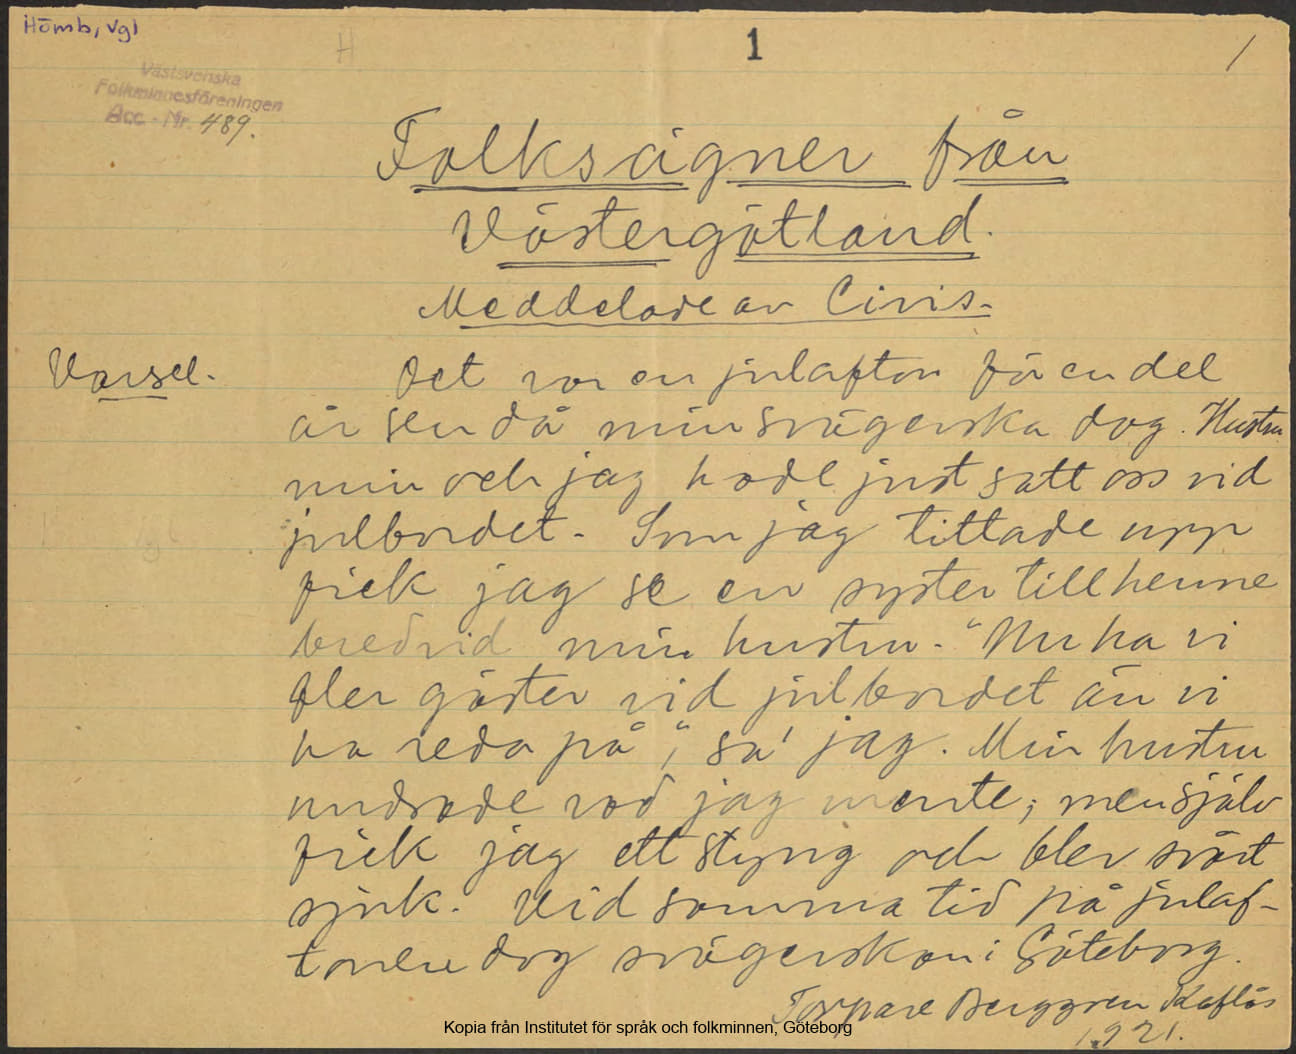 Hömb, Vgl
H
1
1
Västsvenska
Folkminnesföreningen
Acc - Nr. 489.
Folksägner från
Västergötland.
Meddelade av Civis.
Varsel.
Det var en julafton för en del
år sen då min svägerska dog. Hustru
min och jag hade just satt oss vid
julbordet. Som jag tittade upp
fick jag se en syster till henne
bredvid min hustru. "Nu ha vi
fler gäster vid julbordet än vi
ha reda på", sa' jag. Min hustru
undrade vad jag mente; men själv
fick jag ett styng och blev svårt
sjuk. Vid samma tid på julaf-
tonen dog svägerskan i Göteborg.
Torpare Berggren Kaflås
1921.
Kopia från Institutet för språk och folkminnen, Göteborg